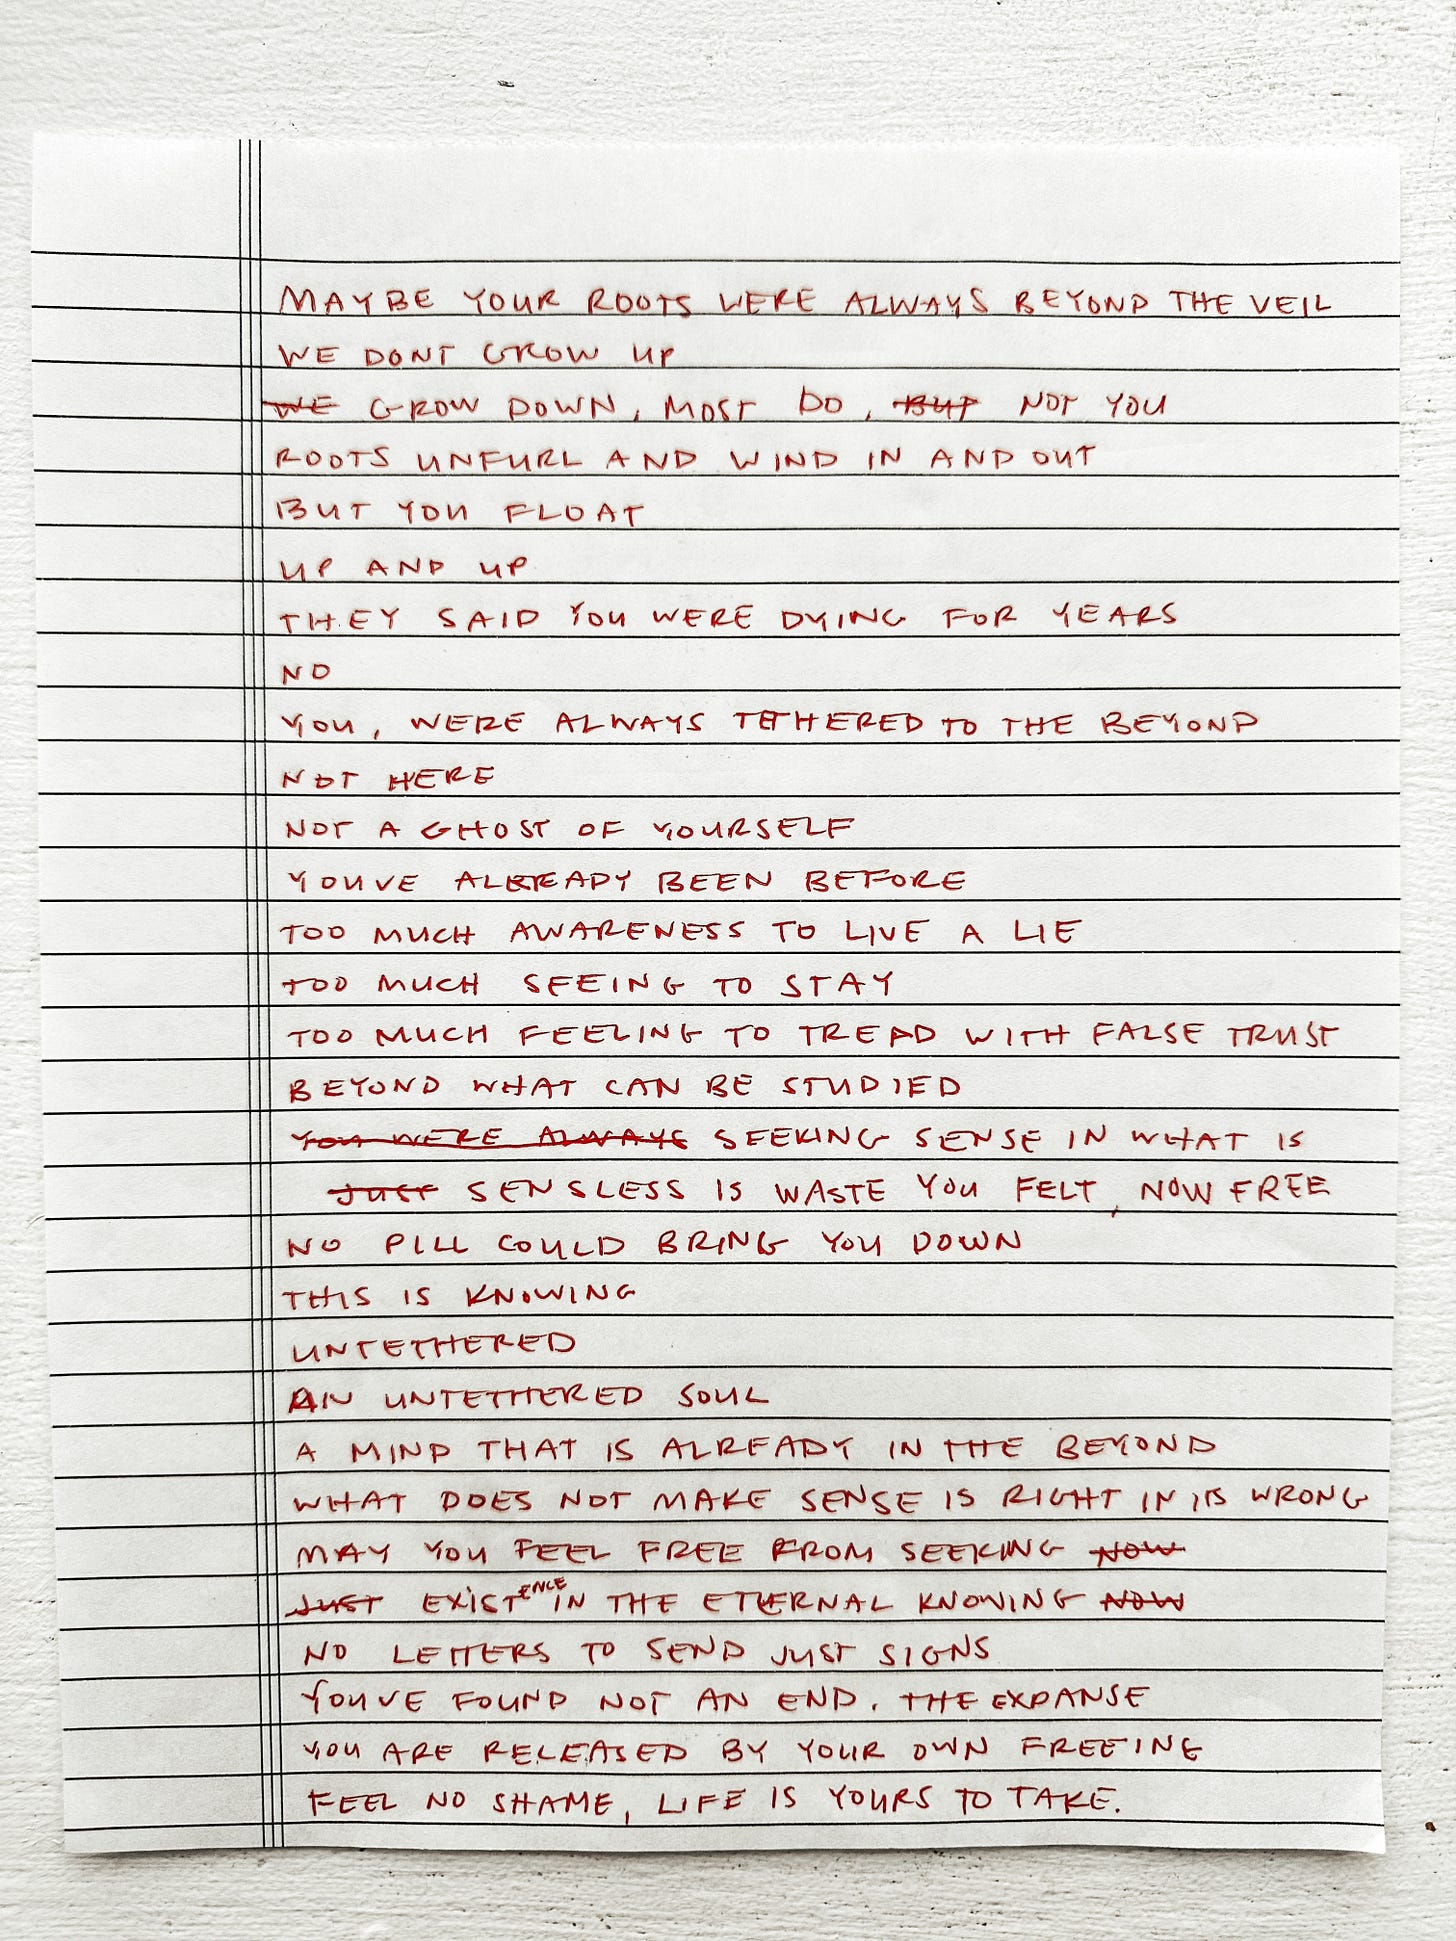 MAYBE YOUR ROOTS WERE ALWAYS BEYOND THE VEIL
WE DONT GROW UP
WE GROW DOWN, MOST DO, BUT NOT YOU
ROOTS UNFURL AND WIND IN AND OUT
BUT YOU FLOAT
UP AND UP
THEY SAID YOU WERE DYING FOR YEARS
NO
YOU, WERE ALWAYS TETHERED TO THE BEYOND
NOT HERE
NOT A GHOST OF YOURSELF
YOUVE ALREADY BEEN BEFORE
TOO MUCH AWARENESS TO LIVE A LIE
TOO MUCH SEEING TO STAY
TOO MUCH FEELING TO TREAD WITH FALSE TRUST
BEYOND WHAT CAN BE STUDIED
YOU WERE ALWAYS SEEKING SENSE IN WHAT IS
JUST SENSLESS IS WASTE YOU FELT, NOW FREE
NO PILL COULD BRING YOU DOWN
THIS IS KNOWING
UNTETHERED
AN UNTETHERED SOUL
A MIND THAT IS ALREADY IN THE BEYOND
WHAT DOES NOT MAKE SENSE IS RIGHT IN ITS WRONG
MAY YOU FEEL FREE FROM SEEKING NOW
JUST EXISTENCE IN THE ETERNAL KNOWING NOW
NO LETTERS TO SEND JUST SIGNS
YOUVE FOUND NOT AN END. THE EXPANSE
YOU ARE RELEASED BY YOUR OWN FREEING
FEEL NO SHAME, LIFE IS YOURS TO TAKE.